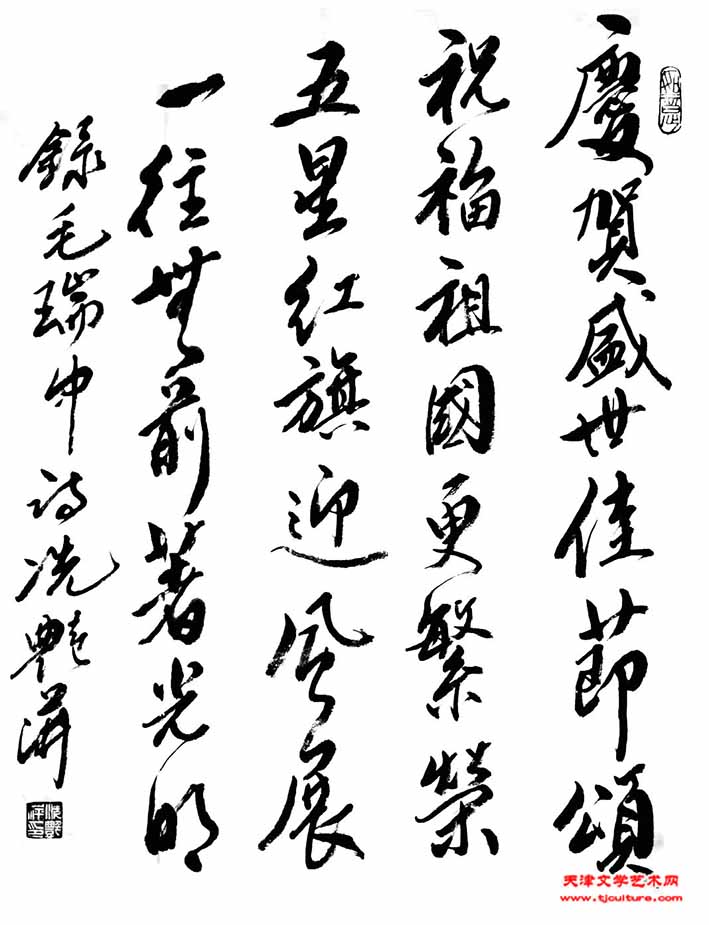 慶賀盛世佳節頌
祝福祖國更繁榮
五星紅旗迎風展
一往無前著光明
錄毛瑞中詩冼艷萍
天津文学艺术网
www.tjculture.com